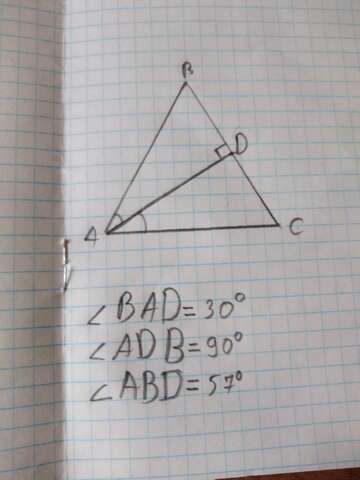 B
D
A
C
∠BAD=30°
∠ADB=90°
∠ABD=57°